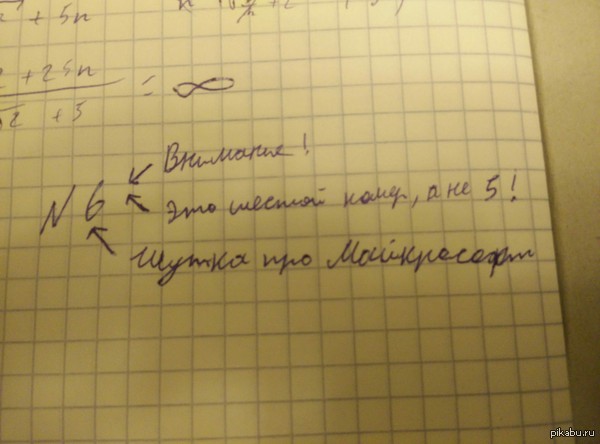 + 5n
+ 25n
= ∞
+ 5
Внимание!
N 6
Это шестой номер, а не 5!
Шутка про Майкрософт
pikabu.ru